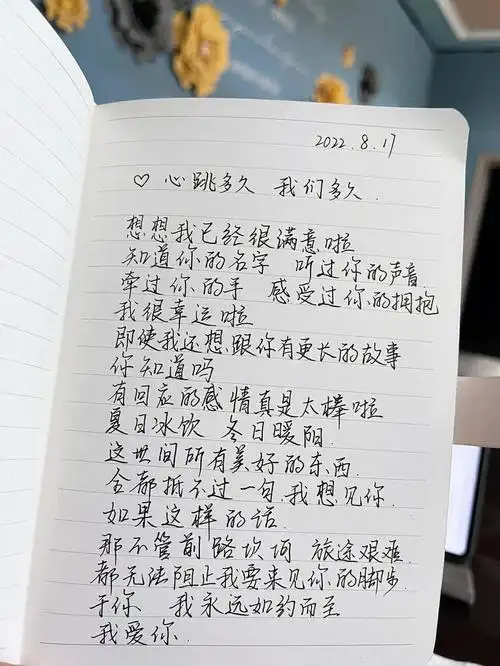 2022.8.17
♡ 心跳多久 我们多久.
想想我已经很满意啦
知道你的名字 听过你的声音
牵过你的手 感受过你的拥抱
我很幸运啦
即使我还想跟你有更长的故事
你知道吗
有回应的感情真是太棒啦
夏日冰饮 冬日暖阳.
这世间所有美好的东西.
全都抵不过一句.我想见你.
如果这样的话.
那不管前路坎坷 旅途艰难.
都无法阻止我要来见你的脚步.
于你 我永远如约而至
我爱你.